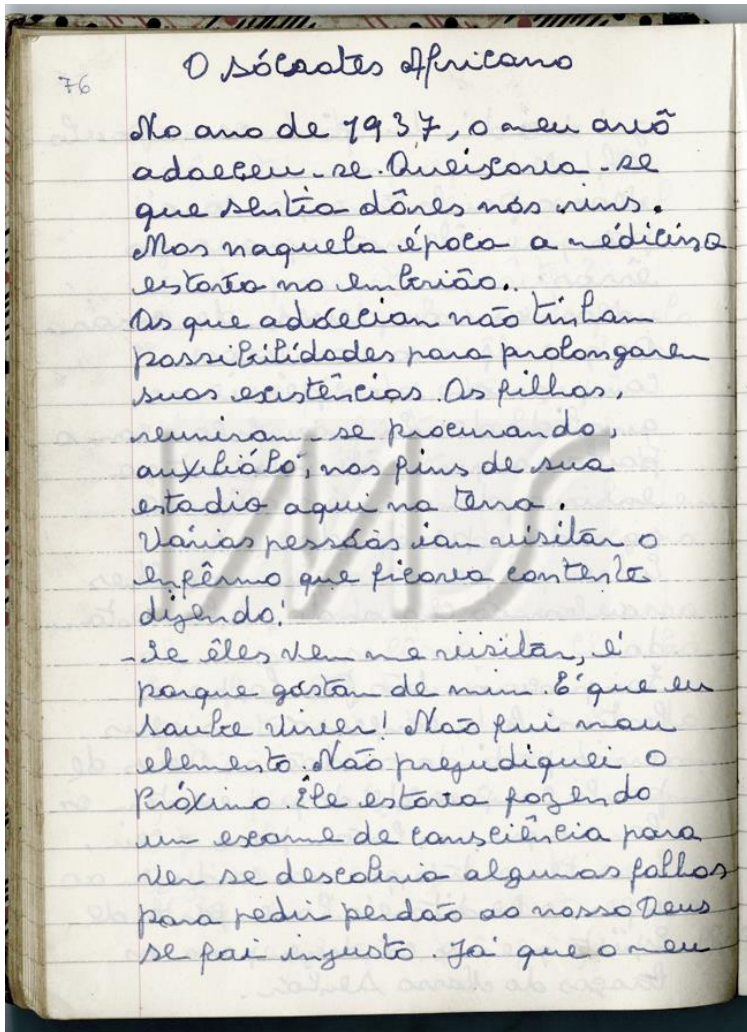 O Sócrates Africano
76
No ano de 1937, o meu avô
adoeceu-se. Queixava-se
que sentia dôres nos rins.
Mas naquela época a médicina
estava no embrião..
Os que adoeciam não tinham
possibilidades para prolongarem
suas existências. Os filhos,
reuniram-se procurando,
auxiliá-ló, nos fins de sua
estadia aqui na terra.
Várias pessôas iam visitar o
enfêrmo que ficava contente
dizendo:
-Se êles vem me visitar, é
porque gostam de mim. É que eu
soube viver! Não fui mau
elemento. Não prejudiquei o
Próximo. Êle estava fazendo
um exame de consciência para
ver se descobria algumas falhas
para pedir perdão ao nosso Deus
se foi injusto. Já que o meu
IMS